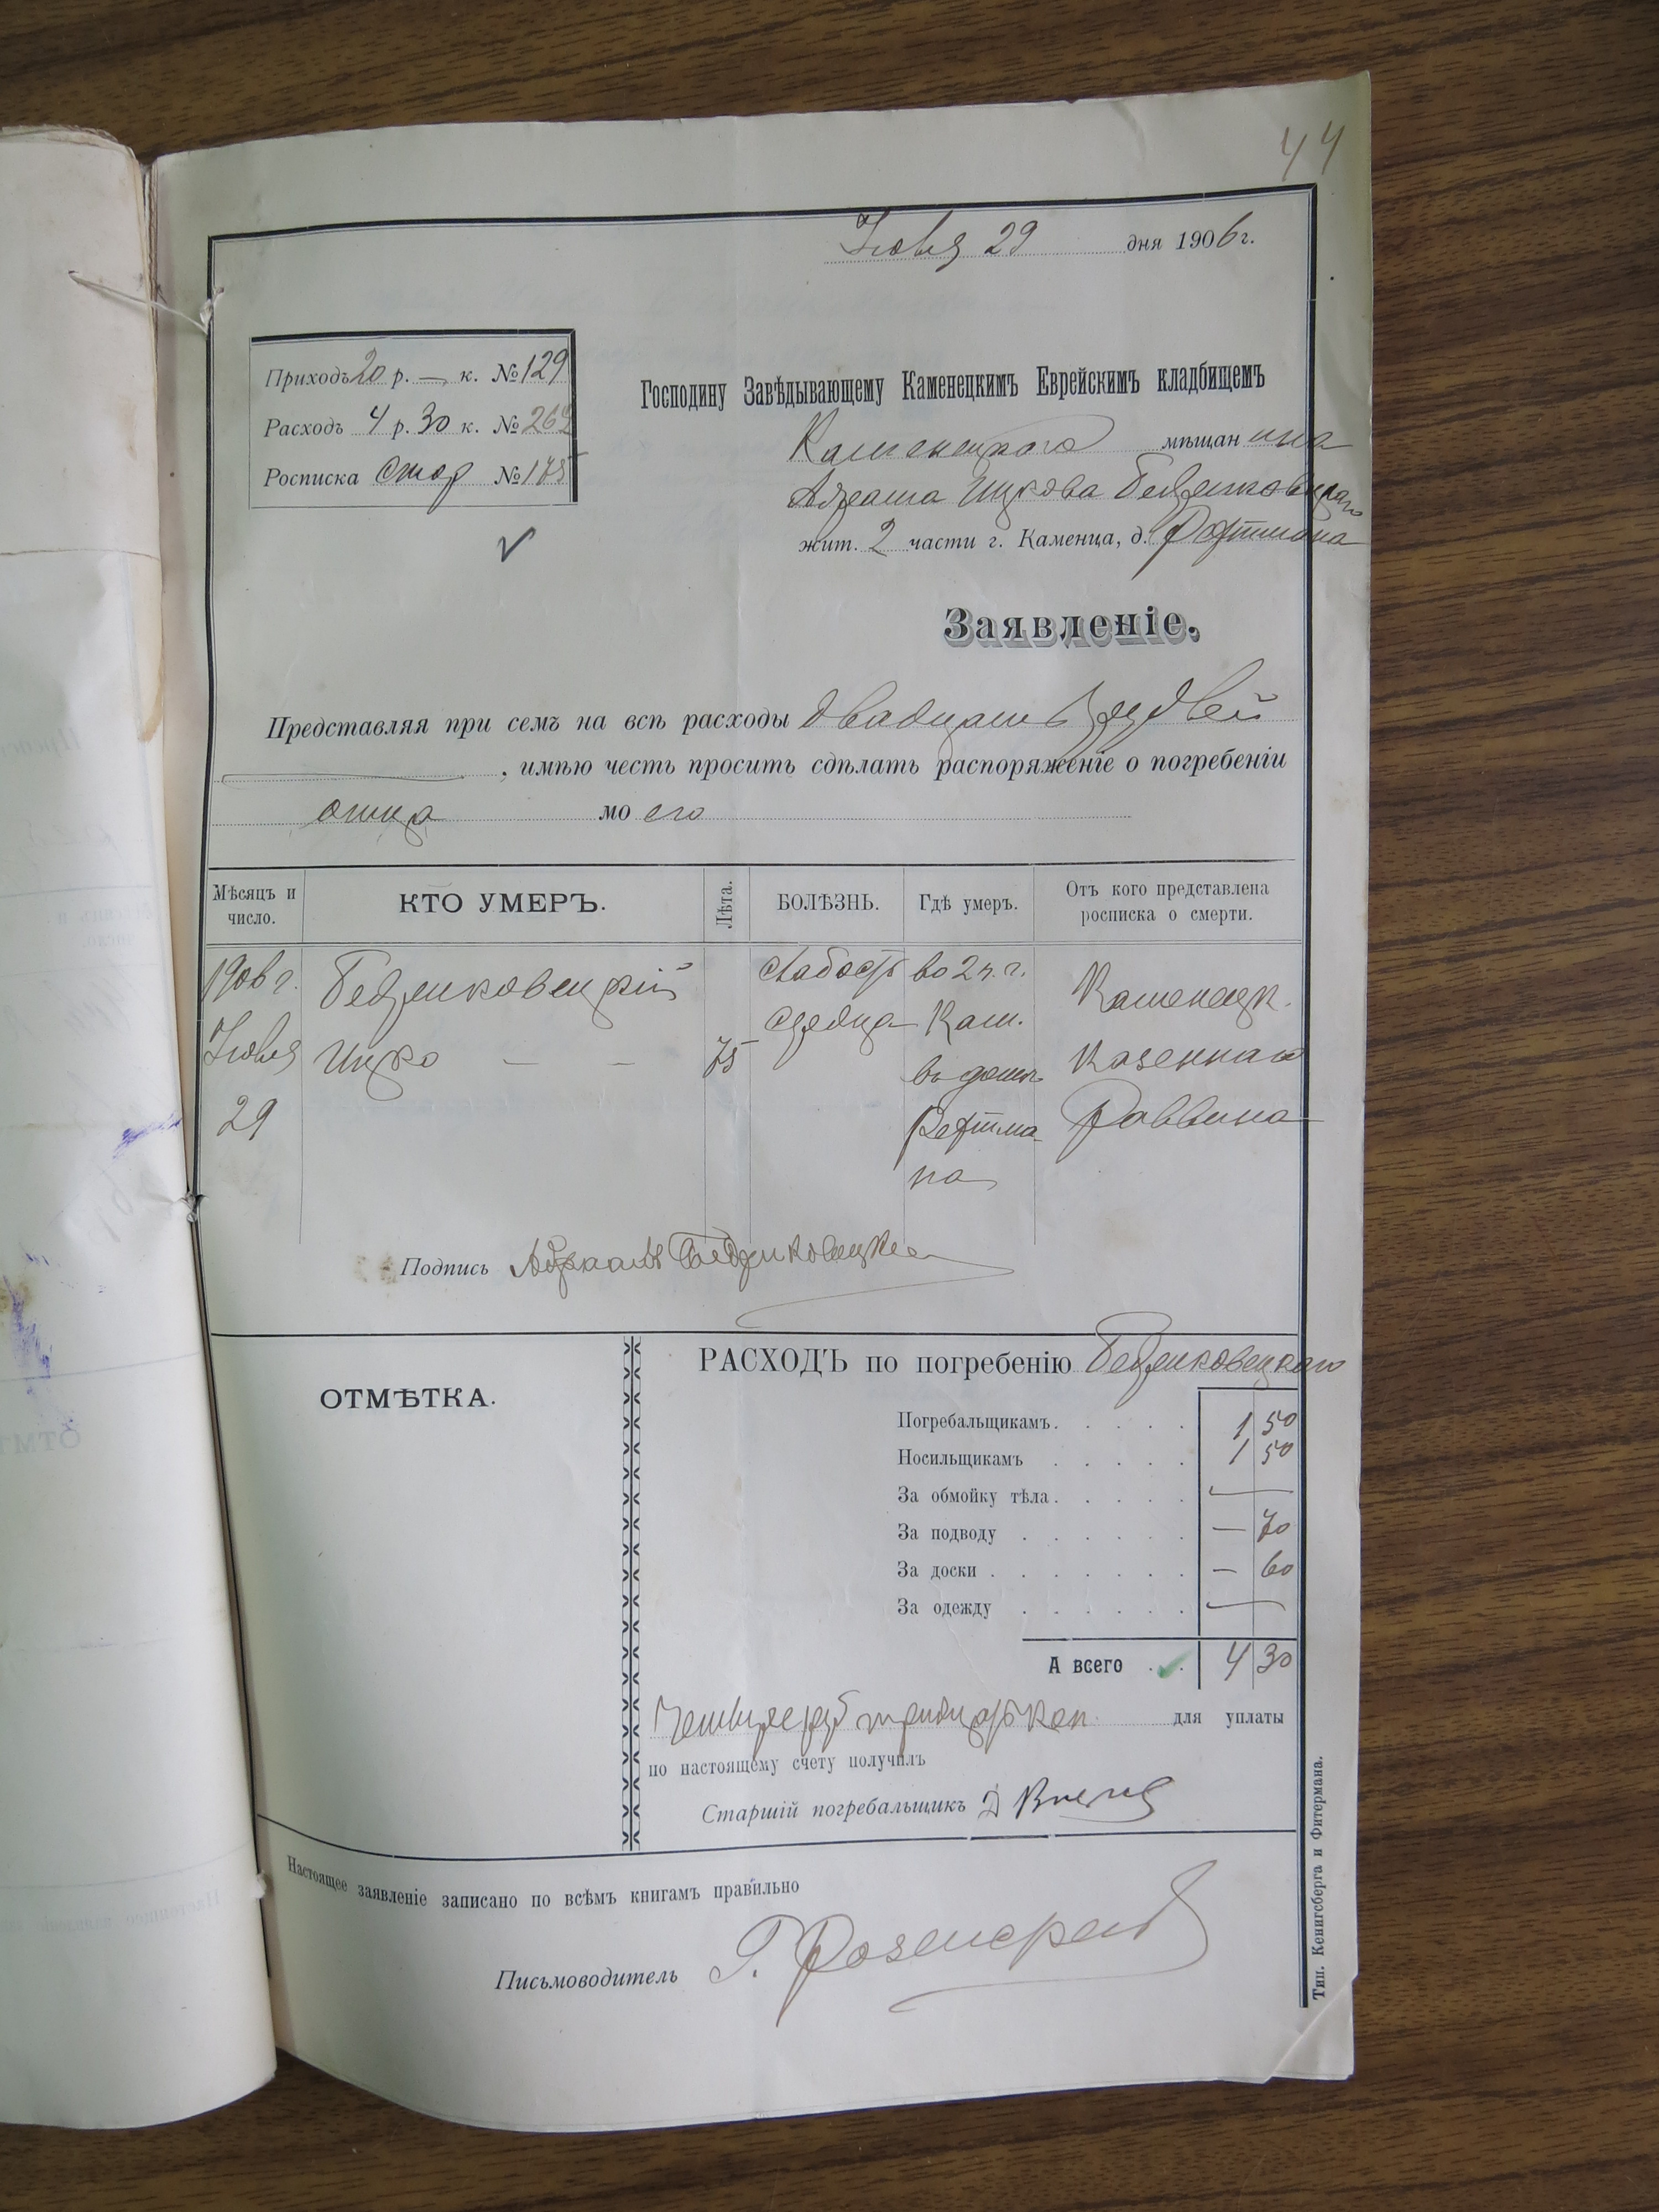 44
Іюля 29 дня 1906 г.
Приходъ 20 р. — к. № 129
Расходъ 4 р. 30 к. № 262
Росписка стор № 175
Господину Завѣдывающему Каменецкимъ Еврейскимъ кладбищемъ
Каменецкого мѣщанина
Абрама Ицкова Бедриковецкаго
жит. 2 части г. Каменца, д.
Заявленіе.
Представляя при семъ на всѣ расходы двадцать рублей
, имѣю честь просить сдѣлать распоряженіе о погребеніи
отца моего
Мѣсяцъ и число.
КТО УМЕРЪ.
Лѣта.
БОЛѢЗНЬ.
Гдѣ умеръ.
Отъ кого представлена росписка о смерти.
1906 г. Бедриковецкій слабость во 2 ч. г. Каменецк.
Іюля Ицко — — 75 сердца Кам. Казеннаго
29 въ домѣ Раввина
на
Подпись Абрамъ Бедриковецкий
ОТМѢТКА.
РАСХОДЪ по погребенію Бедриковецкаго
Погребальщикамъ. 1 50
Носильщикамъ 1 50
За обмойку тѣла. —
За подводу — 70
За доски — 60
За одежду —
А всего 4 30
Четыре руб тридцать коп для уплаты
по настоящему счету получилъ
Старшій погребальщикъ
Настоящее заявленіе записано по всѣмъ книгамъ правильно
Письмоводитель Г.
Тип. Кенигсберга и Фитермана.